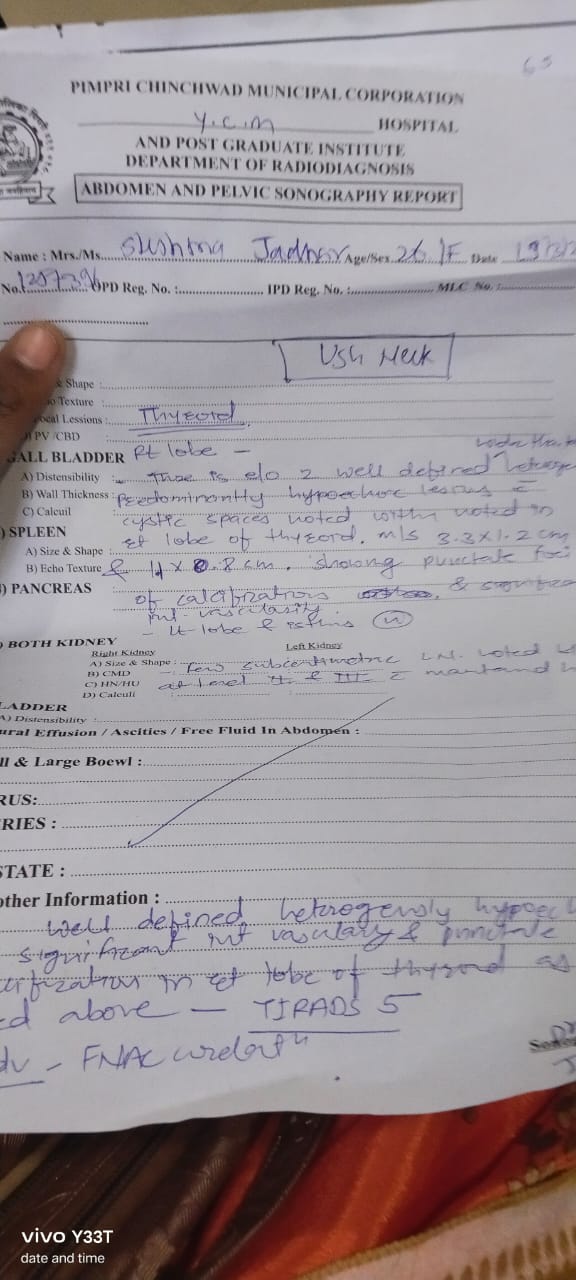 65
PIMPRI CHINCHWAD MUNICIPAL CORPORATION
Y.C.M HOSPITAL
AND POST GRADUATE INSTITUTE
DEPARTMENT OF RADIODIAGNOSIS
ABDOMEN AND PELVIC SONOGRAPHY REPORT
Name : Mrs./Ms. Sushma Jadhav Age/Sex 26/F Date
No. OPD Reg. No. : IPD Reg. No. : MLC No. :
USG Neck
& Shape :
Texture :
Lessions : Thyroid
PV/CBD
GALL BLADDER Rt lobe -
A) Distensibility : There is e/o 2 well defined
B) Wall Thickness : Predominantly hypoechoic lesions c̄
C) Calculi cystic spaces noted noted in
) SPLEEN Rt lobe of thyroid. m/s 3.3x1.2 cm
A) Size & Shape :
B) Echo Texture & showing punctate foci
) PANCREAS of calcifications &
int vascularity.
- Lt lobe & isthmus (N)
BOTH KIDNEY
Right Kidney Left Kidney
A) Size & Shape : - Few subcentimetric L.N. noted
B) CMD
C) HN/HU at level II & III c̄
D) Calculi
LADDER
A) Distensibility :
ural Effusion / Ascities / Free Fluid In Abdomen :
ll & Large Boewl :
RUS:
RIES :
STATE :
other Information :
well defined heterogensly hypoech
significant int vascularity & punctate
in Rt lobe of thyroid as
ed above - TIRADS 5
dv - FNAC
vivo Y33T
date and time